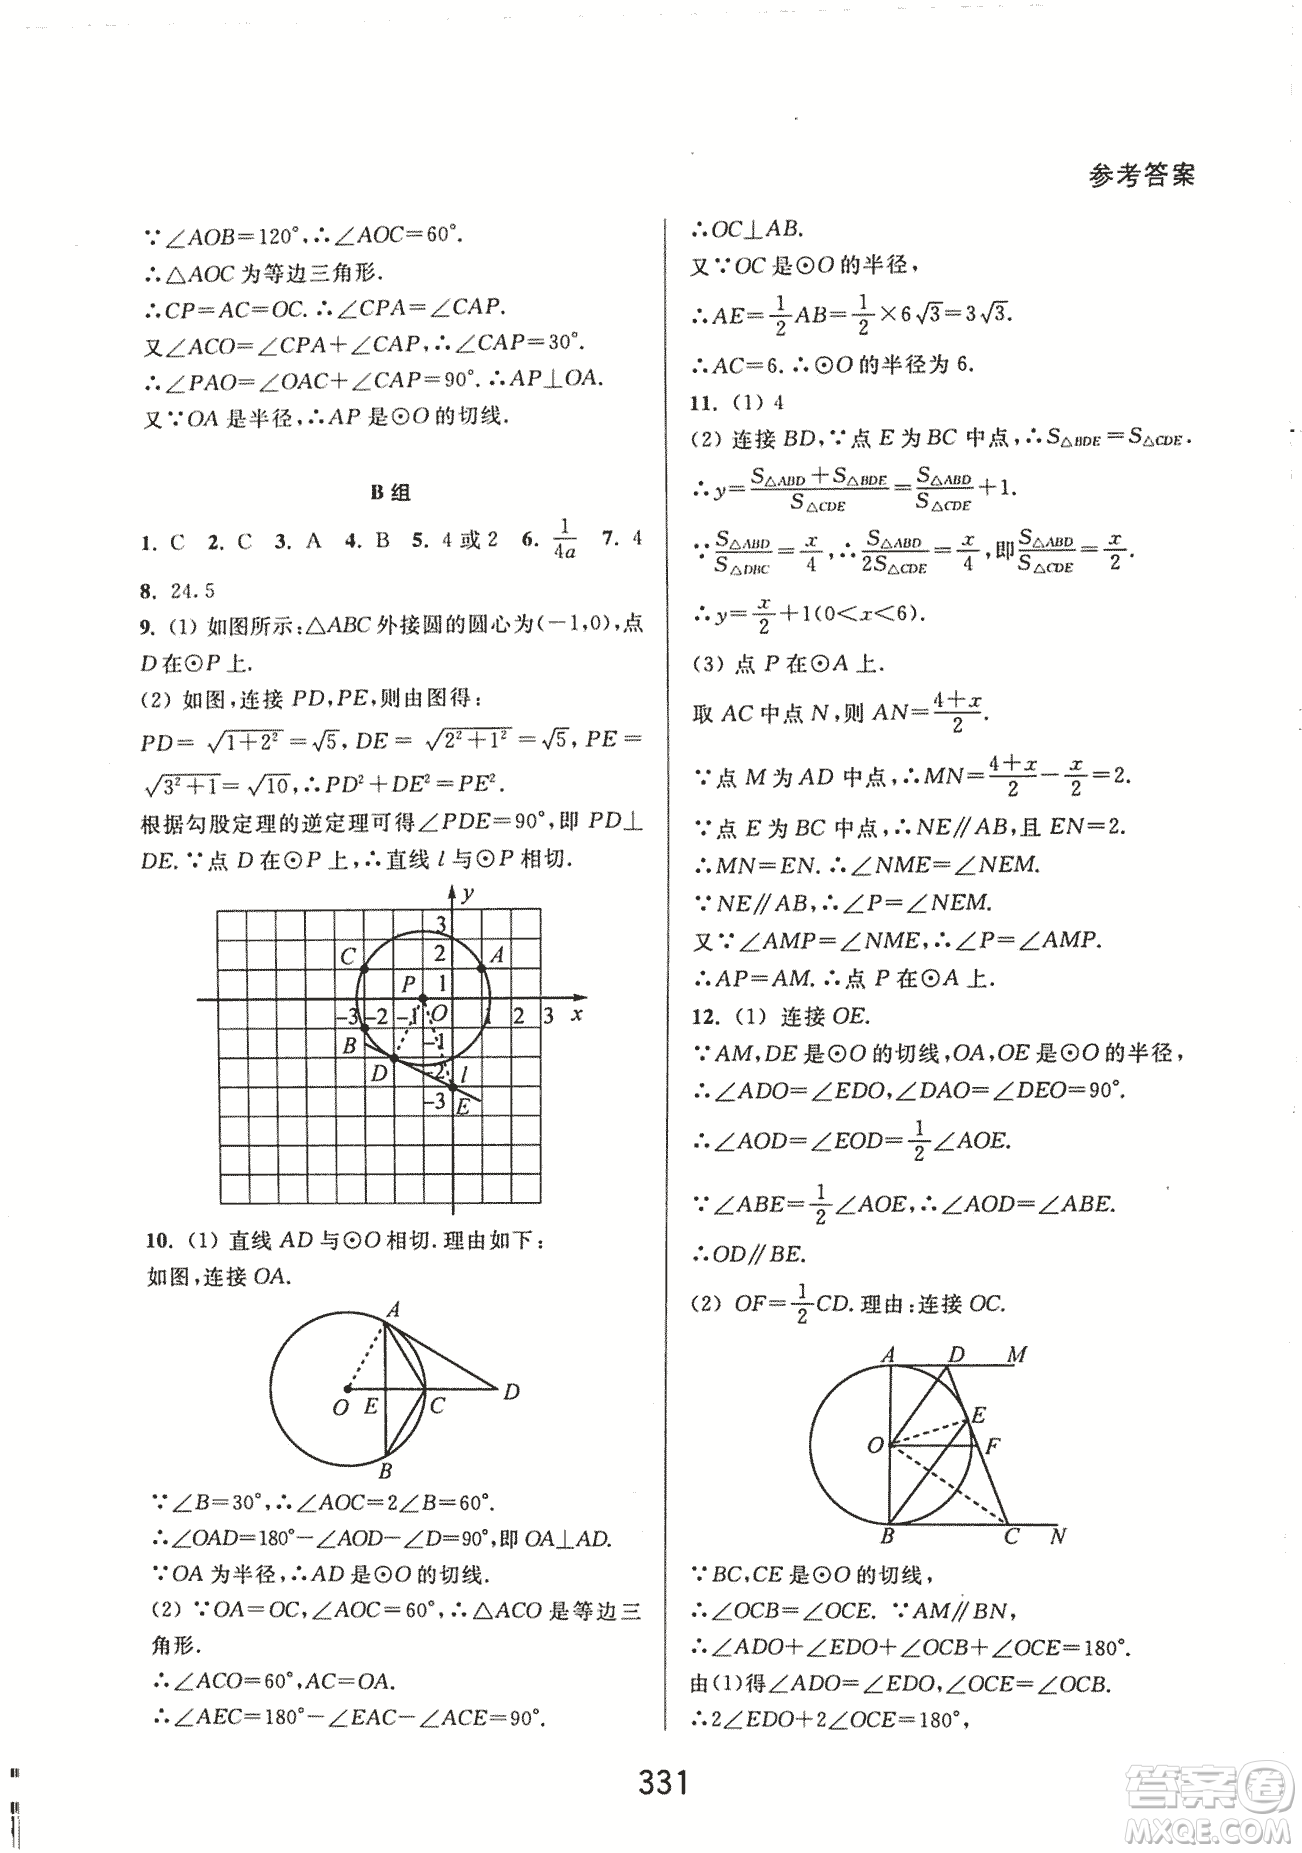 参考答案
∵∠AOB=120°,∴∠AOC=60°.
∴△AOC 为等边三角形.
∴CP=AC=OC.∴∠CPA=∠CAP.
又∠ACO=∠CPA+∠CAP,∴∠CAP=30°.
∴∠PAO=∠OAC+∠CAP=90°.∴AP⊥OA.
又∵OA 是半径,∴AP 是⊙O 的切线.
B 组
1. C 2. C 3. A 4. B 5. 4 或 2 6. 1/4a 7. 4
8. 24.5
9. (1) 如图所示:△ABC 外接圆的圆心为(-1,0),点
D 在⊙P 上.
(2) 如图,连接 PD,PE,则由图得:
PD= √(1+2²)=√5, DE= √(2²+1²)=√5, PE=
√(3²+1)=√10,∴PD²+DE²=PE².
根据勾股定理的逆定理可得∠PDE=90°,即 PD⊥
DE.∵点 D 在⊙P 上,∴直线 l 与⊙P 相切.
y
3
C 2 A
P 1
-3 -2 -1 O 1 2 3 x
B -1
D -2 l
-3 E
10. (1) 直线 AD 与⊙O 相切.理由如下:
如图,连接 OA.
A
O E C D
B
∵∠B=30°,∴∠AOC=2∠B=60°.
∴∠OAD=180°-∠AOD-∠D=90°,即 OA⊥AD.
∵OA 为半径,∴AD 是⊙O 的切线.
(2) ∵OA=OC,∠AOC=60°,∴△ACO 是等边三
角形.
∴∠ACO=60°,AC=OA.
∴∠AEC=180°-∠EAC-∠ACE=90°.
∴OC⊥AB.
又∵OC 是⊙O 的半径,
∴AE=1/2 AB=1/2×6√3=3√3.
∴AC=6.∴⊙O 的半径为 6.
11. (1) 4
(2) 连接 BD,∵点 E 为 BC 中点,∴S△BDE=S△CDE.
∴y=(S△ABD+S△BDE)/S△CDE=S△ABD/S△CDE+1.
∵S△ABD/S△DBC=x/4,∴S△ABD/2S△CDE=x/4,即S△ABD/S△CDE=x/2.
∴y=x/2+1(0<x<6).
(3) 点 P 在⊙A 上.
取 AC 中点 N,则 AN=(4+x)/2.
∵点 M 为 AD 中点,∴MN=(4+x)/2-x/2=2.
∵点 E 为 BC 中点,∴NE∥AB,且 EN=2.
∴MN=EN.∴∠NME=∠NEM.
∵NE∥AB,∴∠P=∠NEM.
又∵∠AMP=∠NME,∴∠P=∠AMP.
∴AP=AM.∴点 P 在⊙A 上.
12. (1) 连接 OE.
∵AM,DE 是⊙O 的切线,OA,OE 是⊙O 的半径,
∴∠ADO=∠EDO,∠DAO=∠DEO=90°.
∴∠AOD=∠EOD=1/2∠AOE.
∵∠ABE=1/2∠AOE,∴∠AOD=∠ABE.
∴OD∥BE.
(2) OF=1/2CD.理由:连接 OC.
A D M
E
O F
B C N
∵BC,CE 是⊙O 的切线,
∴∠OCB=∠OCE. ∵AM∥BN,
∴∠ADO+∠EDO+∠OCB+∠OCE=180°.
由(1)得∠ADO=∠EDO,∠OCE=∠OCB.
∴2∠EDO+2∠OCE=180°,
331
答案圈
MXQE.COM